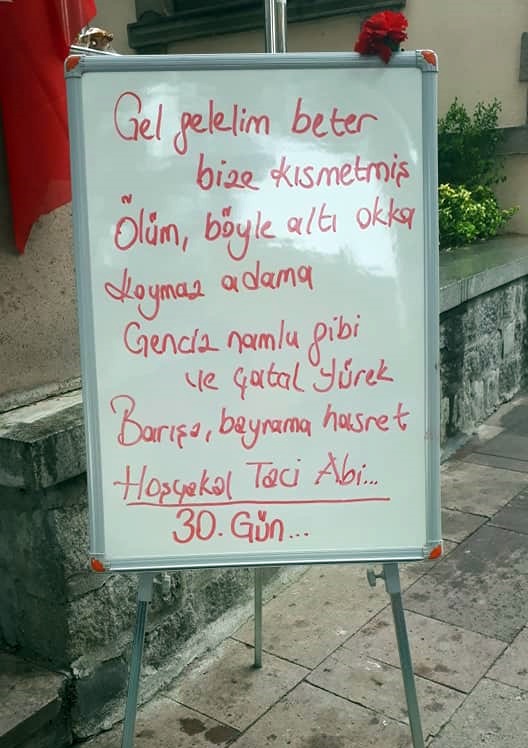 Gel gelelim beter
bize kısmetmiş
Ölüm, böyle altı okka
koymaz adama
Genciz namlu gibi
ve çatal yürek
Barışa, bayrama hasret
Hoşçakal Taci Abi...
30. Gün...